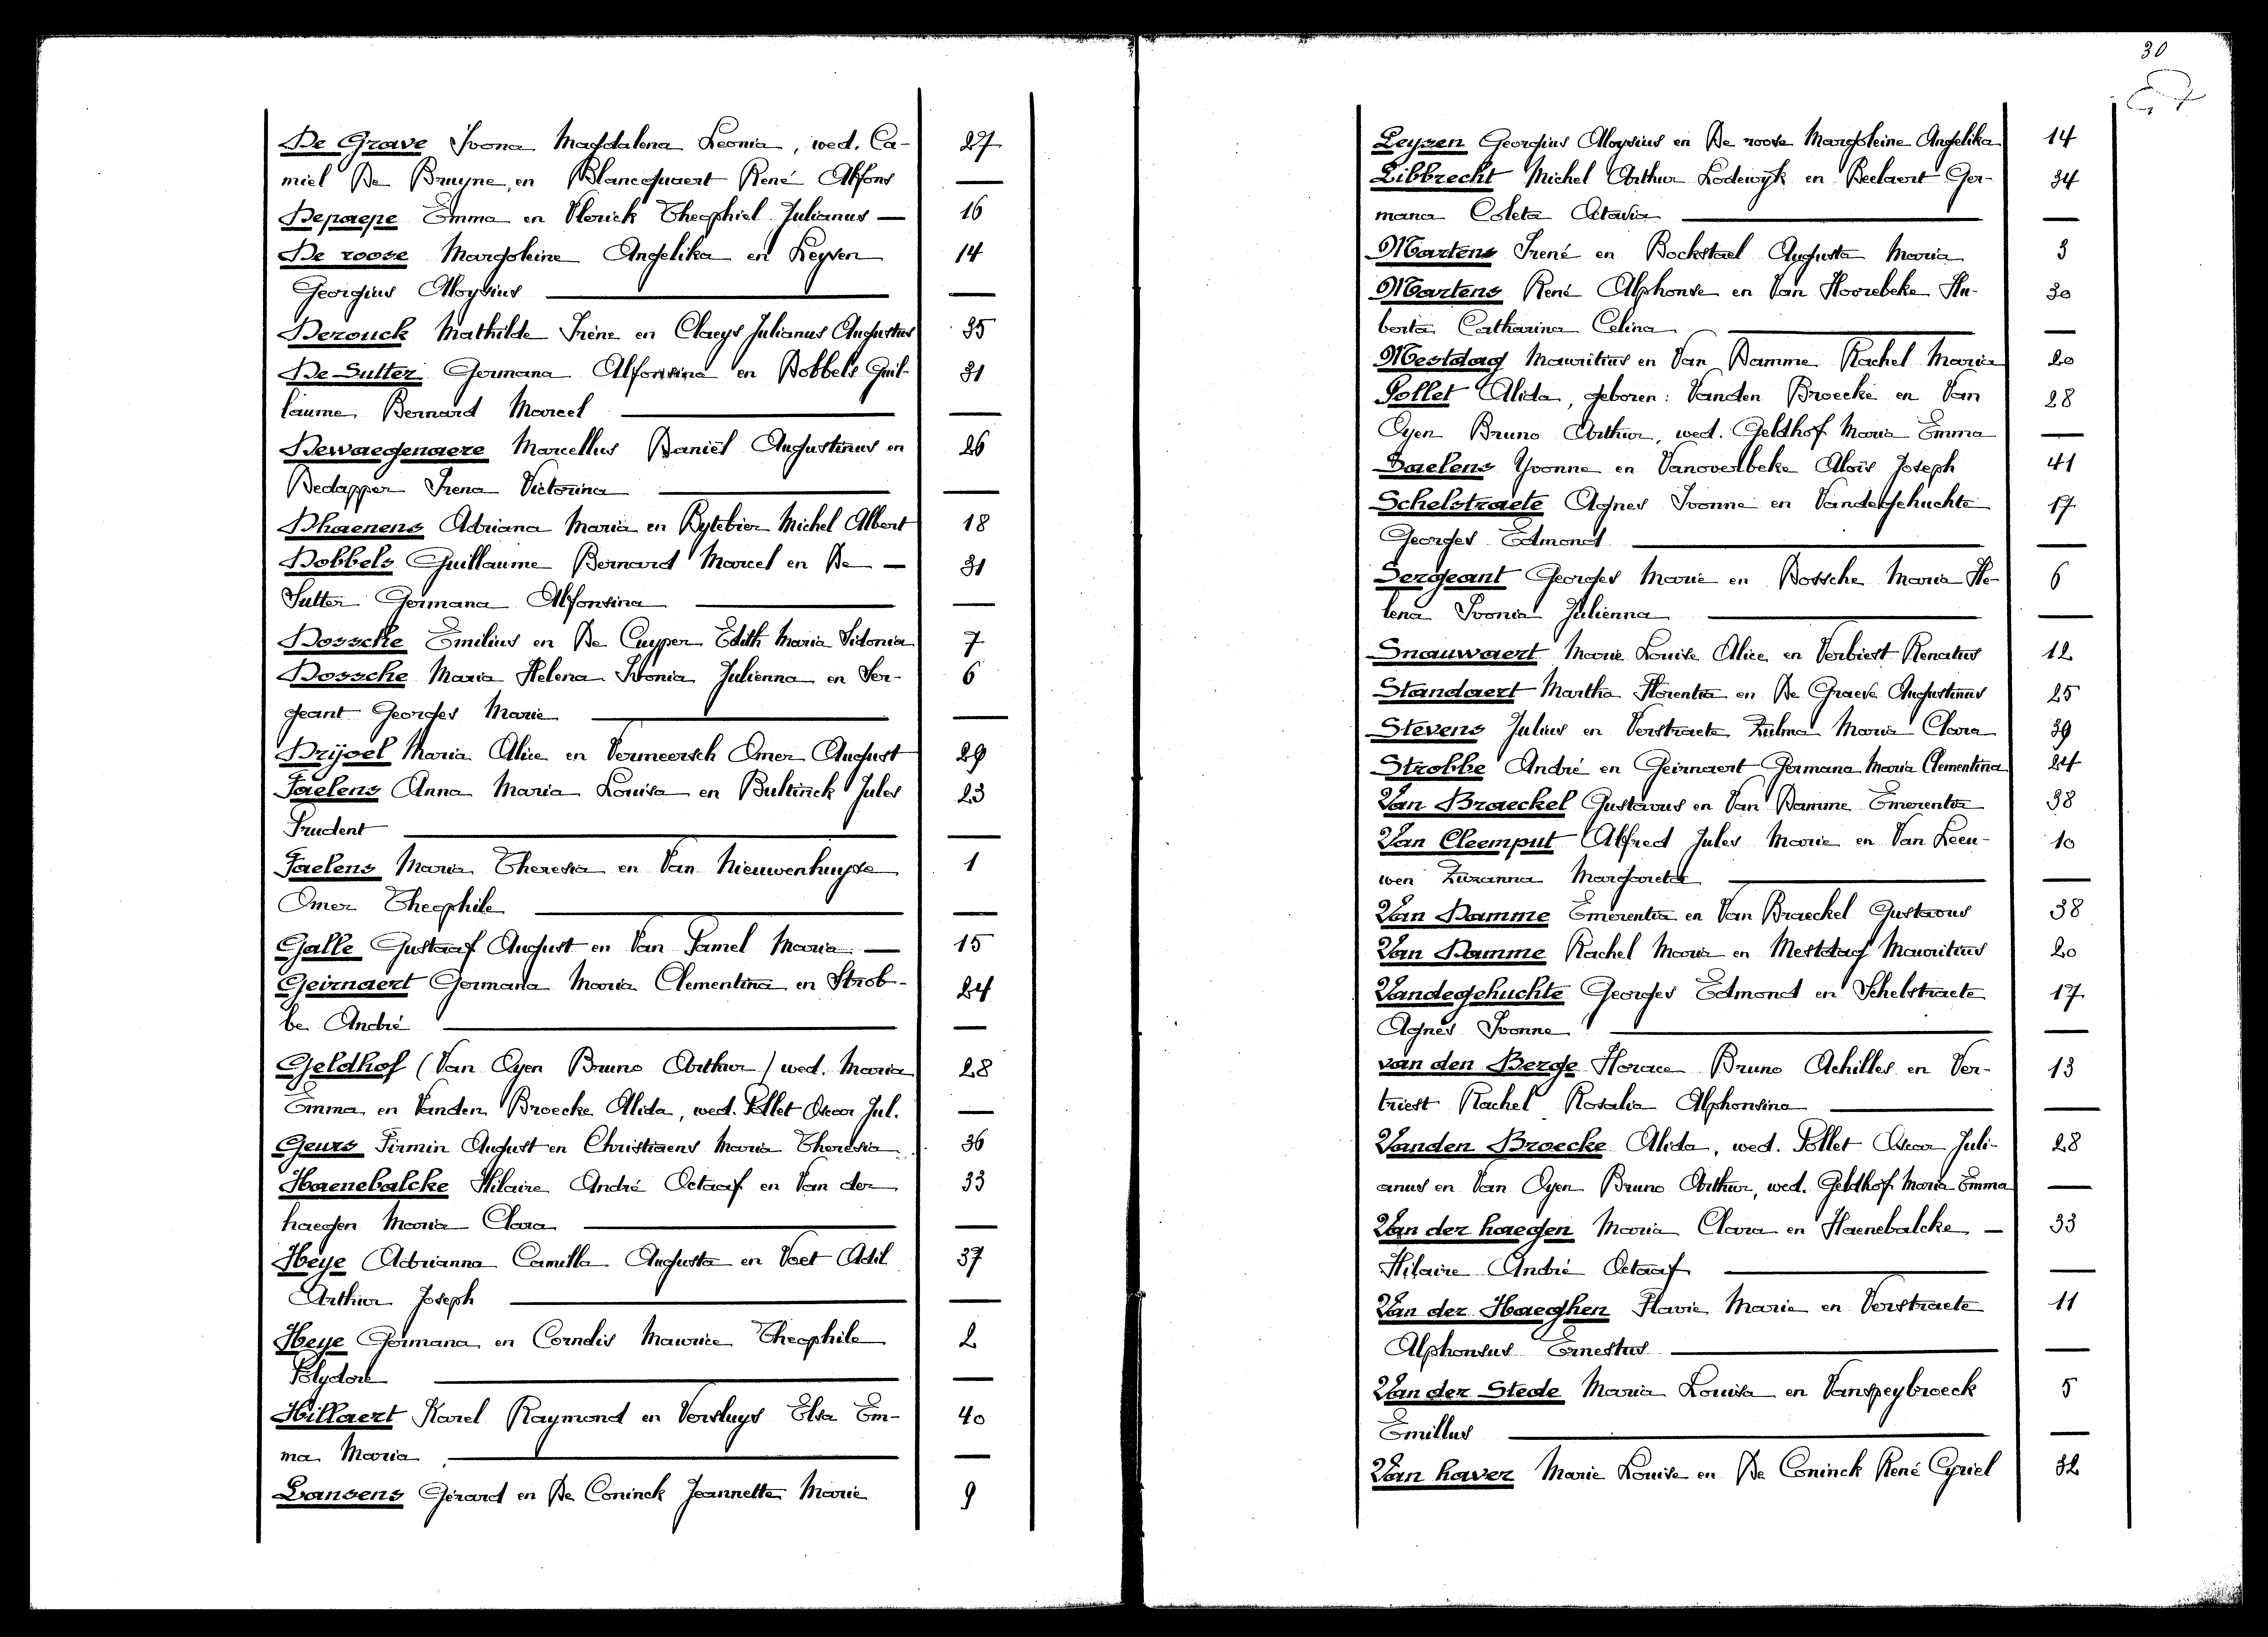 De Grave Ivona Magdalena Leonia, wed. Ca- 27
miel De Bruyne, en Blancquaert René Alfons —
Depaepe Emma en Vlerick Theophiel Julianus — 16
De roose Margoleine Angelika en Leysen 14
Georgius Aloysius —
Derouck Mathilde Irène en Claeys Julianus Augustus 35
De Sutter Germana Alfonsina en Dobbels Guil- 31
laume Bernard Marcel —
Dewaegenaere Marcellus Daniël Augustinus en 26
Dedapper Irena Victorina —
Dhaenens Adriana Maria en Rytebier Michel Albert 18
Dobbels Guillaume Bernard Marcel en De — 31
Sutter Germana Alfonsina —
Dossche Emilius en De Cuyper Edith Maria Sidonia 7
Dossche Maria Helena Ivonia Julienna en Ser- 6
geant Georges Marie —
Drijoel Maria Alice en Vermeersch Omer August 29
Faelens Anna Maria Louisa en Bultinck Jules 23
Prudent —
Faelens Maria Theresia en Van Nieuwenhuyse 1
Omer Theophile —
Galle Gustaaf August en Van Pamel Maria — 15
Geirnaert Germana Maria Clementina en Strob- 24
be André —
Geldhof (Van Oyen Bruno Arthur) wed. Maria 28
Emma en Vanden Broecke Alida, wed. Pollet Oscar Jul. —
Geurs Firmin August en Christiaens Maria Theresia 36
Haenebalcke Hilaire André Octaaf en Van der 33
haegen Maria Clara —
Heye Adrianna Camilla Augusta en Voet Adil 37
Arthur Joseph —
Heye Germana en Cornelis Maurice Theophile 2
Polydore —
Hillaert Karel Raymond en Versluys Elsa Em- 40
ma Maria —
Lansens Gérard en De Coninck Jeannette Marie 9
30
Leysen Georgius Aloysius en De roose Margoleine Angelika 14
Libbrecht Michel Arthur Lodewyk en Beelaert Ger- 34
mana Coleta Octavia —
Martens Irené en Bockstael Augusta Maria 3
Martens René Alphonse en Van Hoorebeke Hu- 30
berta Catharina Celina —
Mestdag Mauritius en Van Damme Rachel Maria 20
Pollet Alida, geboren: Vanden Broecke en Van 28
Oyen Bruno Arthur, wed. Geldhof Maria Emma —
Saelens Yvonne en Vanoverbeke Aloïs Joseph 41
Schelstraete Agnes Ivonne en Vandegehuchte 17
Georges Edmond —
Sergeant Georges Marie en Dossche Maria He- 6
lena Ivonia Julienna —
Snauwaert Marie Louise Alice en Verbiest Renatus 12
Standaert Martha Florentia en De Graeve Augustinus 25
Stevens Julius en Verstraete Zulma Maria Clara 39
Strobbe André en Geirnaert Germana Maria Clementina 24
Van Braeckel Gustavus en Van Damme Emerentia 38
Van Cleemput Alfred Jules Marie en Van Leeu- 10
wen Zuzanna Margareta —
Van Damme Emerentia en Van Braeckel Gustavus 38
Van Damme Rachel Maria en Mestdag Mauritius 20
Vandegehuchte Georges Edmond en Schelstraete 17
Agnes Ivonne —
van den Berge Horace Bruno Achilles en Ver- 13
triest Rachel Rosalia Alphonsina —
Vanden Broecke Alida, wed. Pollet Oscar Juli- 28
anus en Van Oyen Bruno Arthur, wed. Geldhof Maria Emma —
Van der haegen Maria Clara en Haenebalcke — 33
Hilaire André Octaaf —
Van der Haeghen Flavie Marie en Verstraete 11
Alphonsus Ernestus —
Van der Stede Maria Louisa en Vanspeybroeck 5
Emillus —
Van haver Marie Louise en De Coninck René Cyriel 32